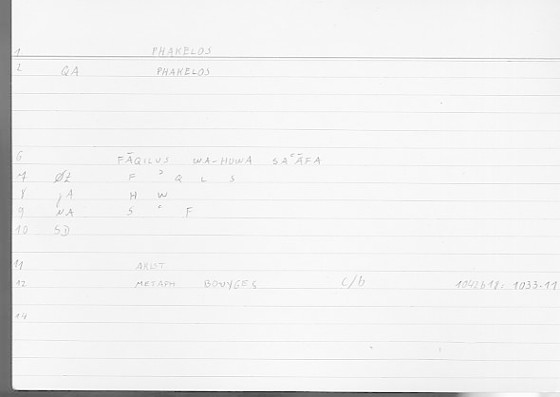 1 PHAKELOS
2 QA PHAKELOS
6 FĀQILUS WA-HUWA SAʿĀFA
7 ØZ F ʾ Q L S
8 JA H W
9 NA S ʿ F
10 SD
11 ARIST
12 METAPH BOUYGES C/b 1042b18: 1033-11
14